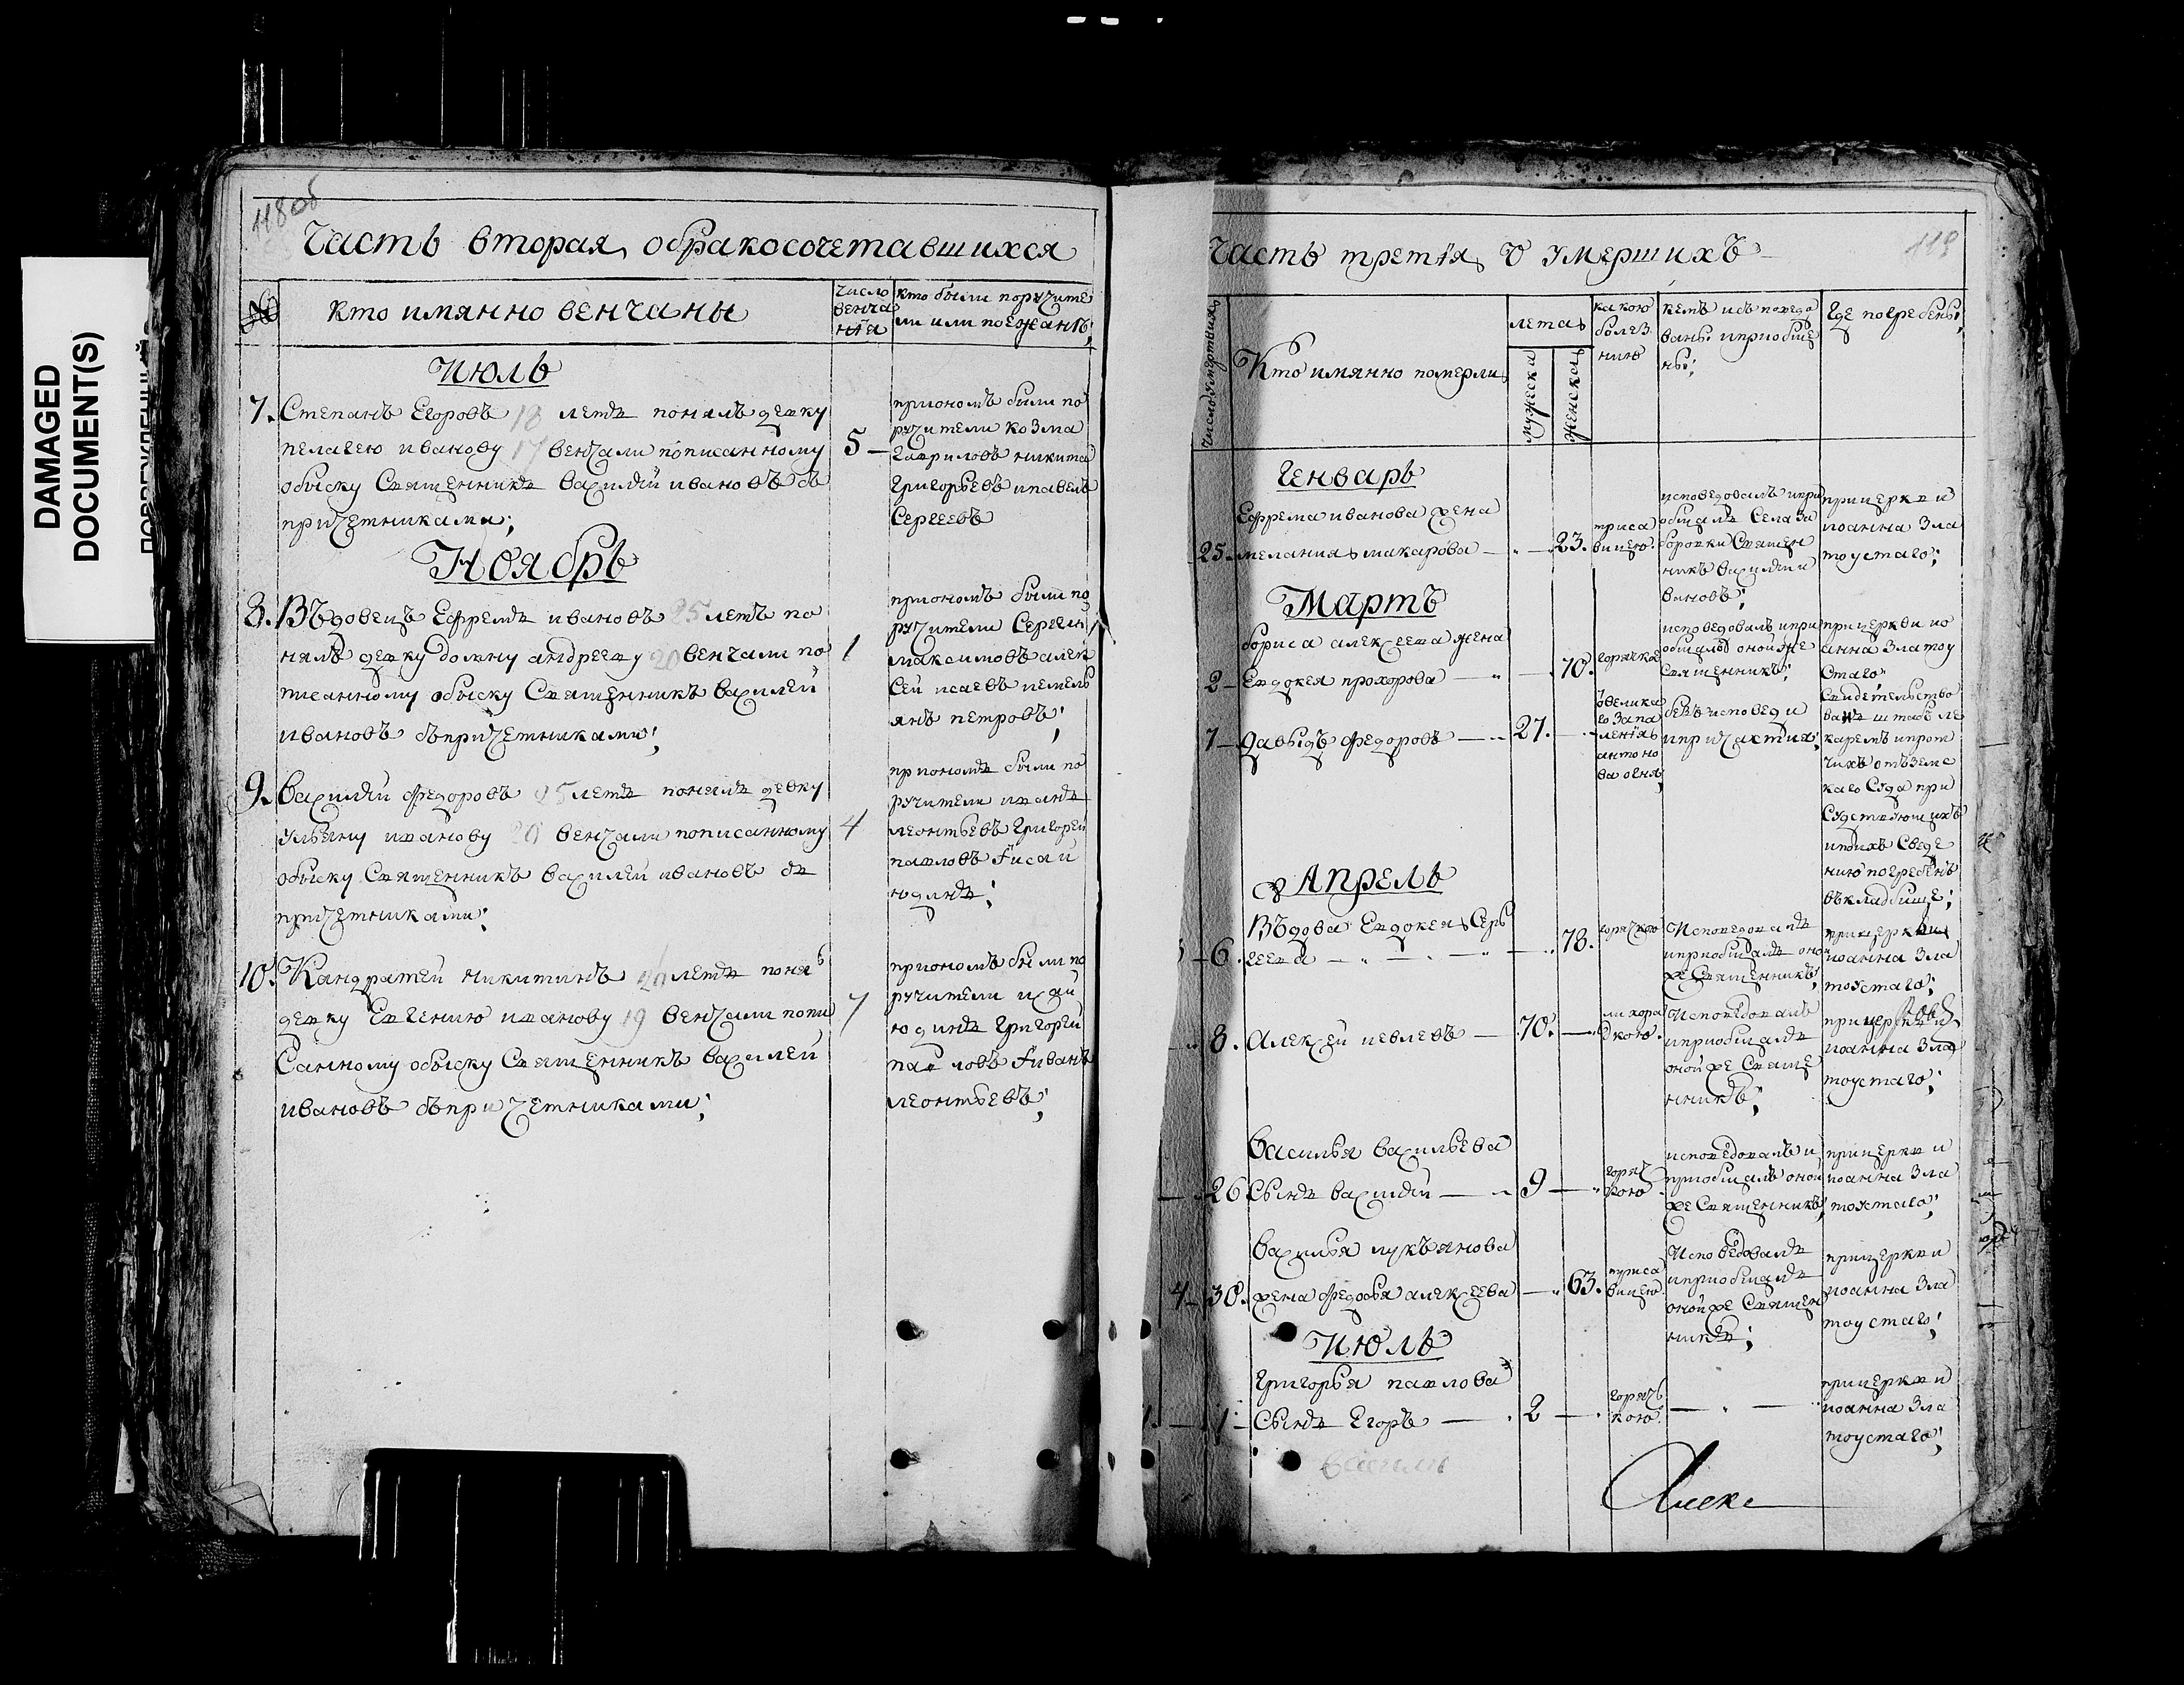 DAMAGED
DOCUMENT(S)
118об
Часть вторая, обракосочетавшихся
№
кто имянно венчаны
число
венча
нїя
кто были поручите
ли или поезжанѣ;
Июль
7. Степанъ Егоровъ 18 летъ понялъ девку
пелагею иванову 17 венчали пописанному
обыску Священникъ василий ивановъ съ
причетниками;
5 —
приономъ были по
ручители козма
Гавриловъ никита
Григорьевъ ипавелъ
Сергеевъ
Ноябрь
8. Въдовецъ Ефремъ ивановъ 25 летъ по
нялъ девку домну андрееву 20 венчали по
писанному обыску Священникъ василей
ивановъ съпричетниками;
1
приономъ были по
ручители Сергей
максимовъ алек
сей исаевъ иемель
янъ петровъ;
9. василий федоровъ 25 летъ понялъ девку
ульяну иванову 20 венчали пописанному
обыску Священникъ василей ивановъ съ
причетниками;
4
приономъ были по
ручители иванъ
леонтьевъ Григорей
павловъ їисай
юдинъ;
10. Кандратей никитинъ 20 летъ понялъ
девку Евгению иванову 19 венчали попи
санному обыску Священникъ василей
ивановъ съпричетниками;
7
приономъ были по
ручители исай
юдинъ Григорей
павловъ їиванъ
леонтьевъ;
часть третїя, о умершихъ
119
число умертвия
Кто имянно померли
лета
мужеска
женска
какою
болез
нию
кемъ исъповедо
ваны иприобще
ны;
Где погребены;
Генварь
25. Ефрема иванова жена
мелания макарова — 23.
исповедовалъ ипри
общалъ Села За
боровки Священ
никъ василий и
вановъ;
прицеркви
иоанна Зла
тоустаго;
Мартъ
2 — бориса алексеева жена
Евдокея прохорова — 70.
горячкою
исповедовалъ ипри
общалъ оной же
Священникъ;
прицеркви ио
анна Златоу
стаго;
7 — давыдъ федоровъ — 27.
безъисповеди
ипричастия;
Свидетельство
ванъ штабъ ле
каремъ ипрот
чихъ отъземс
каго Суда при
Судствующихъ
ипоихъ Сведе
нию погребенъ
въкладбище;
Апрель
6. Въдова Евдокея Серь
геева — 78.
горячкою
Исповедовалъ
иприобщалъ оной
же Священникъ;
прицеркви
иоанна Зла
тоустаго;
8. Алексей иевлевъ — 70. —
лихора
дкою.
Исповедовалъ
иприобщалъ
оной же Свяще
нникъ;
прицеркви
иоанна Зла
тоустаго;
26 василья васильева
сынъ василий — 9 —
горяч
кою
исповедовалъ и
приобщалъ оной
же Священникъ;
прицеркви
иоанна Зла
тоустаго;
4 — 30. василья лукъянова
жена федосья алексеева — 63.
Исповедовалъ
иприобщалъ
оной же Священ
никъ;
прицеркви
иоанна Зла
тоустаго;
Июль
1 — Григорья павлова
сынъ Егоръ — 2 —
горячь
кою.
прицеркви
иоанна Зла
тоустаго;
Алекс